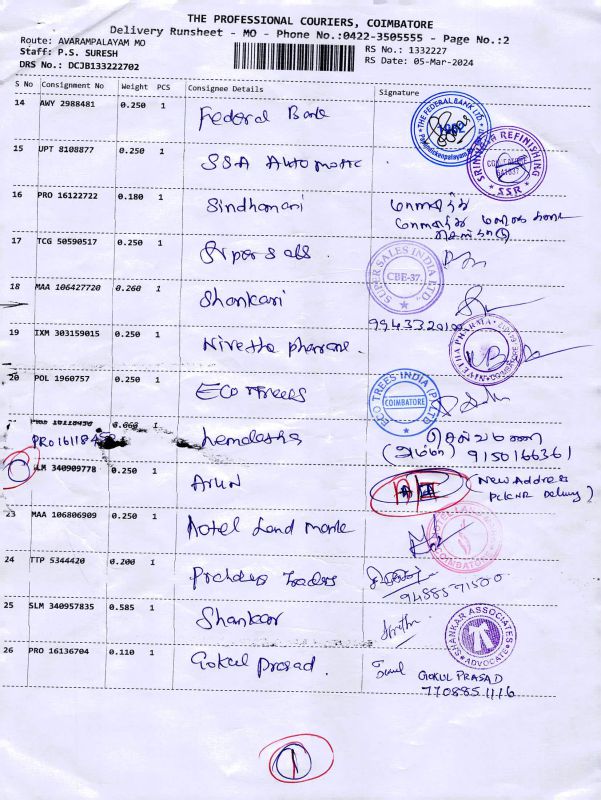 THE PROFESSIONAL COURIERS, COIMBATORE
Delivery Runsheet - MO - Phone No.:0422-3505555 - Page No.:2
Route: AVARAMPALAYAM MO
Staff: P.S. SURESH
DRS No.: DCJB133222702
RS No.: 1332227
RS Date: 05-Mar-2024
S No Consignment No Weight PCS Consignee Details Signature
14 AWY 2988481 0.250 1 Federal Bank
THE FEDERAL BANK LTD.
15 UPT 8108877 0.250 1 SSA Automatic
REFINISHING
SSR
16 PRO 16122722 0.180 1 Sindhamani
17 TCG 50590517 0.250 1
SUPER SALES INDIA LTD.
CBE-37.
18 MAA 106427720 0.260 1 Shankari
9943320100
19 IXM 303159015 0.250 1 Nivetha pharma.
NIVETHA PHARMA
COIMBATORE
20 POL 1960757 0.250 1 ECO Trees
ECO TREES INDIA (P) LTD
COIMBATORE
PRO 16118450 0.060 1
PRO 161184
செல்வமணி
(அம்மா) 9150166361
SLM 340909778 0.250 1 ARUN
(New Address
23 MAA 106806909 0.250 1 Hotel Land Mark
COIMBATORE
24 TTP 5344420 0.200 1 Pradeep Traders
9488571500
25 SLM 340957835 0.585 1 Shankar
SHANKAR ASSOCIATES
ADVOCATE
26 PRO 16136704 0.110 1 Gokul Prasad.
GOKUL PRASAD
7708851116
1